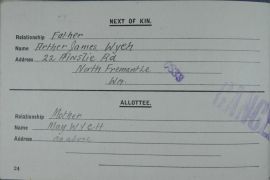 NEXT OF KIN.
Relationship Father
Name Arthur James Wych
Address 22 Ainslie Rd
North Fremantle
WA.
ALLOTTEE.
Relationship Mother
Name May WYCH
Address as above
24